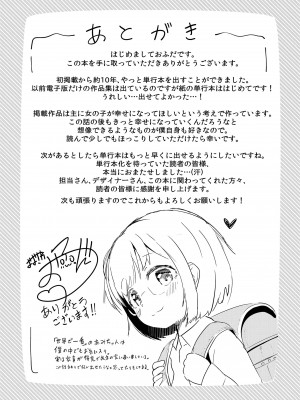 あとがき
はじめましておふだです。
この本を手に取っていただきありがとうございます。
初掲載から約10年、やっと単行本を出すことができました。
以前電子版だけの作品集は出ているのですが紙の単行本ははじめてです！
うれしい…出せてよかった…！
掲載作品は主に女の子が幸せになってほしいという考えで作っています。
この話の後もきっと幸せになっていくんだろうなと
想像できるようなものが僕自身も好きなので。
読んで少しでもほっこりしていただけたら幸いです。
次があるとしたら単行本はもっと早くに出せるようにしたいですね。
単行本化を待っていた読者の皆様、
本当におまたせしました…(汗)
担当さん、デザイナーさん、この本に関わってくれた方々、
読者の皆様に感謝を申し上げます。
次も頑張りますのでこれからもよろしくお願いします！
ありがとう
ございます!!